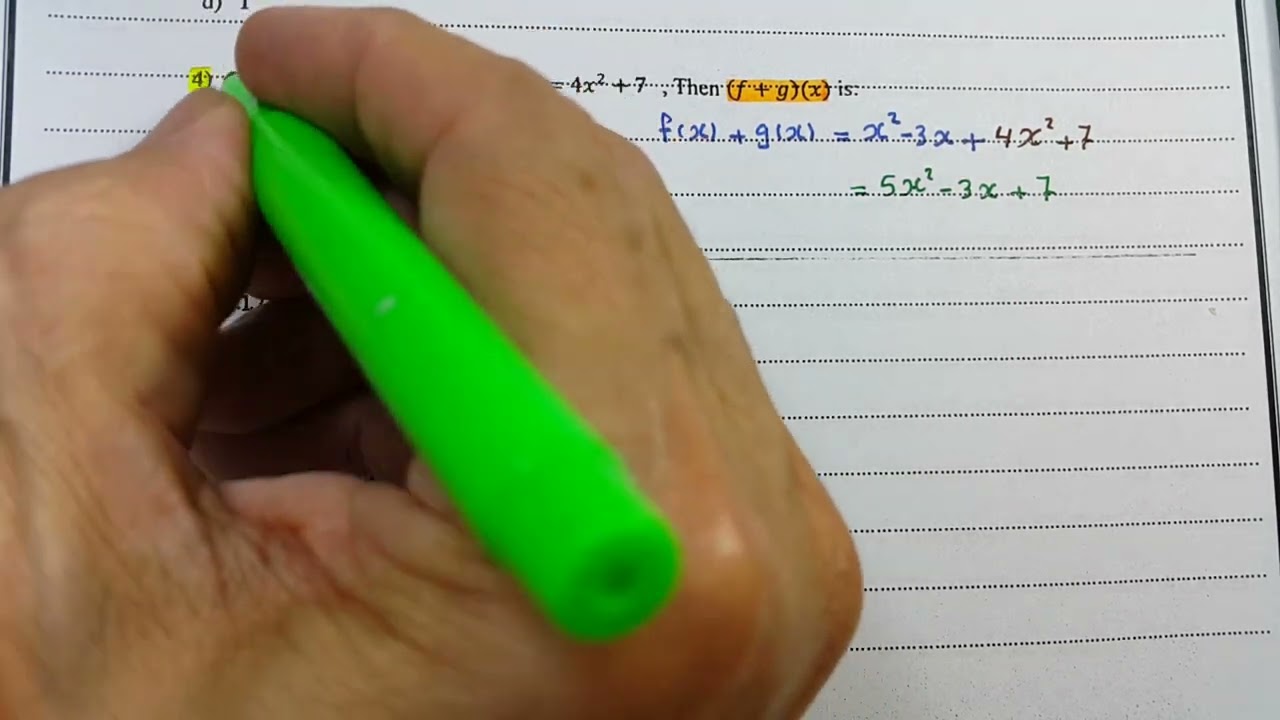 d) 1
4) = 4x² + 7 , Then (f + g)(x) is:
f(x) + g(x) = x² - 3x + 4x² + 7
= 5x² - 3x + 7